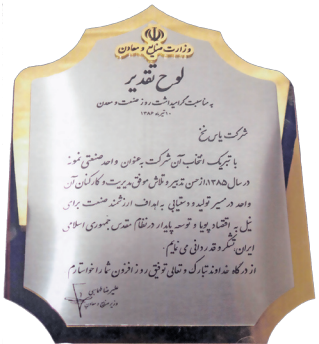 وزارت صنایع و معادن
لوح تقدیر
به مناسبت گرامیداشت روز صنعت و معدن
۱۰ تیرماه ۱۳۸۶
شرکت یاس نخ
با تبریک انتخاب آن شرکت به عنوان واحد صنعتی نمونه
در سال ۱۳۸۵، از حسن تدبیر و تلاش موفق مدیریت و کارکنان آن
واحد در مسیر تولید و دستیابی به اهداف ارزشمند صنعت برای
نیل به اقتصاد پویا و توسعه پایدار در نظام مقدس جمهوری اسلامی
ایران تشکر و قدردانی می نمایم.
از درگاه خداوند تبارک و تعالی توفیق روز افزون شما را خواستارم
علیرضا طهماسبی
وزیر صنایع و معادن